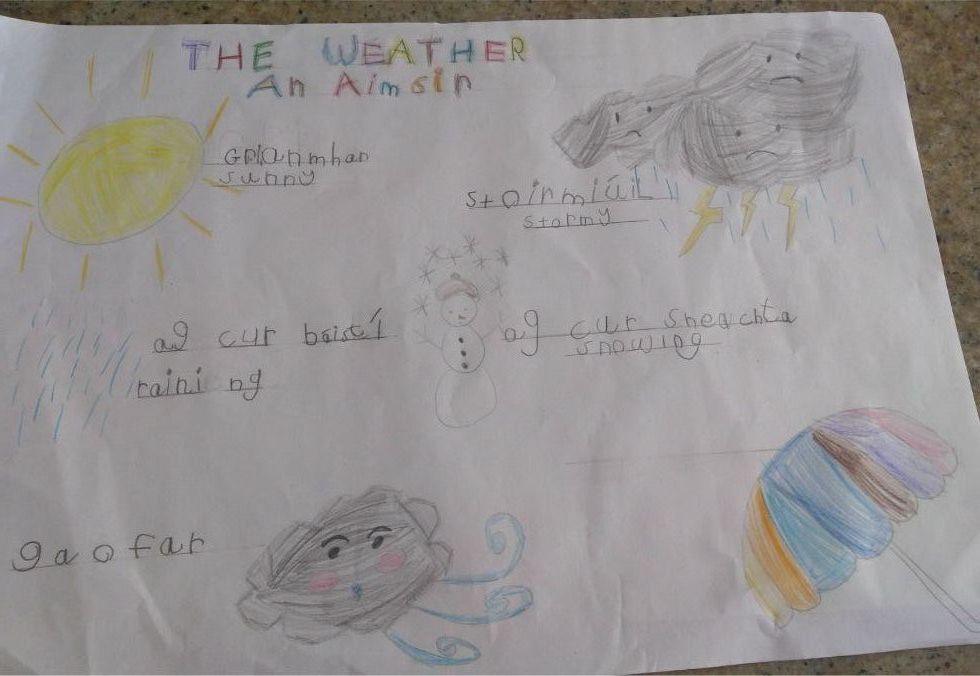 THE WEATHER
An Aimsir
Grianmhar
sunny
stoirmiúil
stormy
ag cur báistí
raining
ag cur sneachta
snowing
gaofar